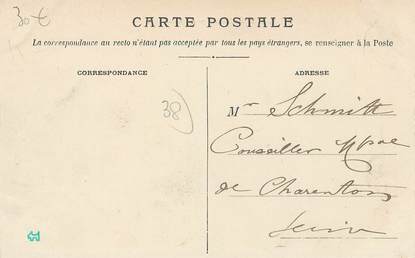 30€
CARTE POSTALE
La correspondance au recto n'étant pas acceptée par tous les pays étrangers, se renseigner à la Poste
CORRESPONDANCE
ADRESSE
38)
Mr Schmitt
Conseiller Mpal
de Charenton
Seine